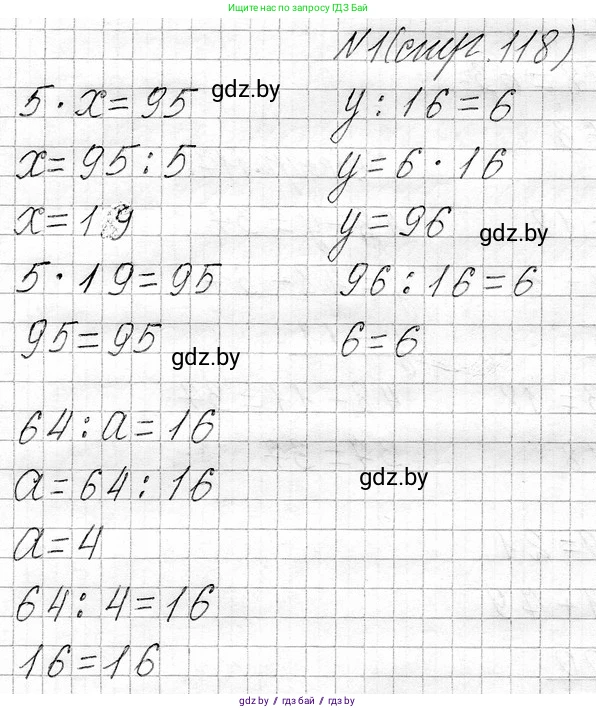 Больше решений по запросу ГДЗ Бай
№1(стр.118)
5·x=95
x=95:5
x=19
5·19=95
95=95
y:16=6
y=6·16
y=96
96:16=6
6=6
64:a=16
a=64:16
a=4
64:4=16
16=16
gdz.by
gdz.by
gdz.by
gdz.by
gdz.by / гдз бай / гдз by